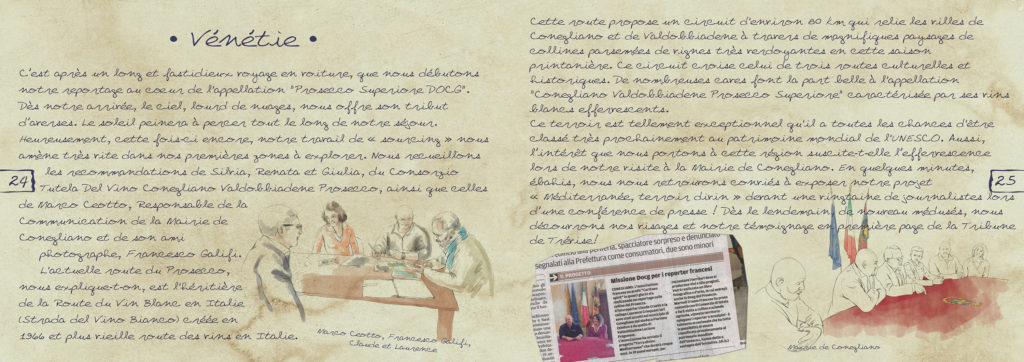 • Vénétie •
C'est après un long et fastidieux voyage en voiture, que nous débutons
notre reportage au coeur de l'appellation "Prosecco Superiore DOCG".
Dès notre arrivée, le ciel, lourd de nuages, nous offre son tribut
d'averses. Le soleil peinera à percer tout le long de notre séjour.
Heureusement, cette fois-ci encore, notre travail de « sourcing » nous
amène très vite dans nos premières zones à explorer. Nous recueillons
les recommandations de Silvia, Renata et Giulia, du Consorzio
Tutela Del Vino Conegliano Valdobbiadene Prosecco, ainsi que celles
de Marco Ceotto, Responsable de la
Communication de la Mairie de
Conegliano et de son ami
photographe, Francesco Galifi.
L'actuelle route du Prosecco,
nous explique-t-on, est l'héritière
de la Route du Vin Blanc en Italie
(Strada del Vino Bianco) créée en
1966 et plus vieille route des vins en Italie.
24
Marco Ceotto, Francesco Galifi,
Claude et Laurence
Cette route propose un circuit d'environ 80 km qui relie les villes de
Conegliano et de Valdobbiadene à travers de magnifiques paysages de
collines parsemées de vignes très verdoyantes en cette saison
printanière. Ce circuit croise celui de trois routes culturelles et
historiques. De nombreuses caves font la part belle à l'appellation
"Conegliano Valdobbiadene Prosecco Superiore" caractérisée par ses vins
blancs effervescents.
Ce terroir est tellement exceptionnel qu'il a toutes les chances d'être
classé très prochainement au patrimoine mondial de l'UNESCO. Aussi,
l'intérêt que nous portons à cette région suscite-t-elle l'effervescence
lors de notre visite à la Mairie de Conegliano. En quelques minutes,
ébahis, nous nous retrouvons conviés à exposer notre projet
« Méditerranée, terroir divin » devant une vingtaine de journalistes lors
d'une conférence de presse ! Dès le lendemain, de nouveau médusés, nous
découvrons nos visages et notre témoignage en première page de la Tribune
de Trévise!
25
spacciatore sorpreso e denunciato
segnalati alla Prefettura come consumatori, due sono minori
IL PROGETTO
Missione Docg per i reporter francesi
Mairie de Conegliano